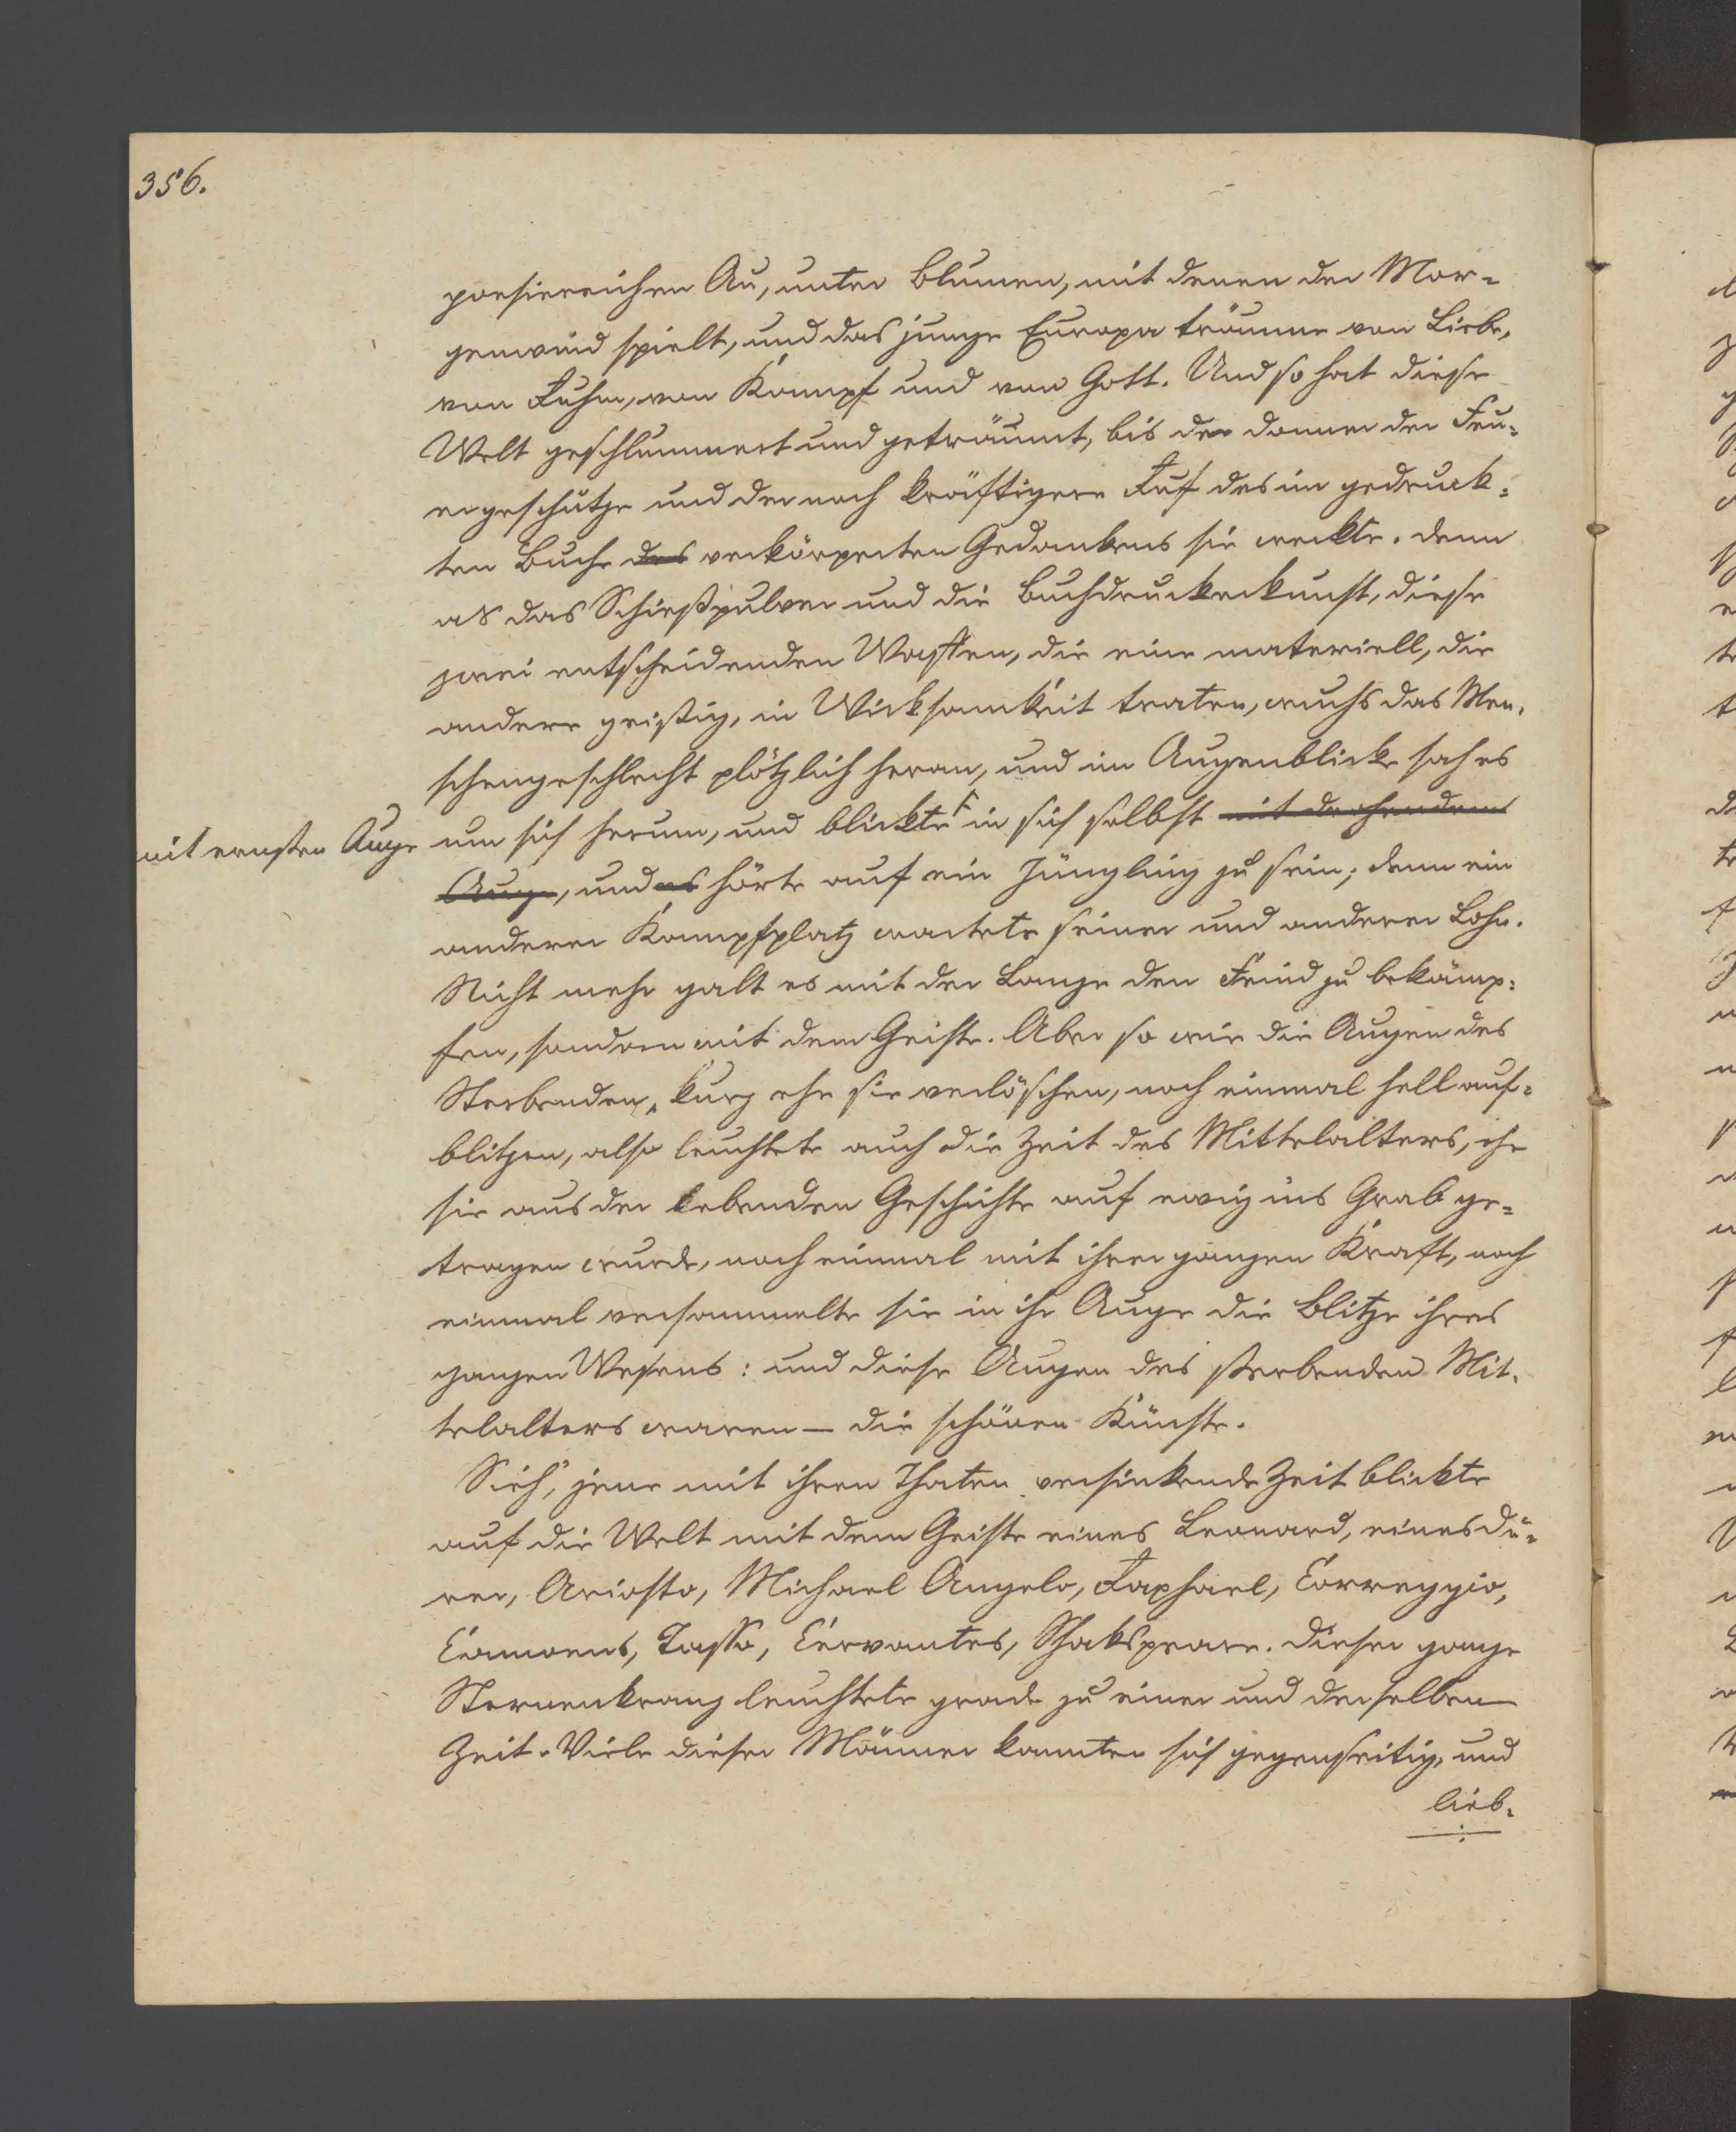 356.
poesiereichen Au, unter Blumen, mit denen der Mor-
genwind spielt, und das junge Europa träumte von Liebe,
von Ruhm, von Kampf und von Gott. Und so hat diese
Welt geschlummert und geträumt, bis der Donner der Feu-
ergeschütze und der noch kräftigere Ruf des im gedruck-
ten Buche des verkörperten Gedankens sie weckte. Denn
als das Schießpulver und die Buchdruckerkunst, diese
zwei entscheidenden Waffen, die eine materiell, die
andere geistig, in Wirksamkeit traten, wuchs das Men-
schengeschlecht plötzlich heran, und im Augenblicke sah es
mit ernsten Auge um sich herum, und blickte in sich selbst mit drohendem
Auge, und es hörte auf ein Jüngling zu sein; denn ein
anderer Kampfplatz wartete seiner und anderer Lohn.
Nicht mehr galt es mit der Lanze den Feind zu bekämp-
fen, sondern mit dem Geiste. Aber so wie die Augen des
Sterbenden, kurz ehe sie verlöschen, noch einmal hell auf-
blitzen, also leuchtete auch die Zeit des Mittelalters, ehe
sie aus der lebenden Geschichte auf ewig ins Grab ge-
tragen wurde, noch einmal mit ihrer ganzen Kraft, noch
einmal versammelte sie in ihr Auge die Blitze ihres
ganzen Wesens: und diese Augen des sterbenden Mit-
telalters waren — die schönen Künste.
Sieh', jene mit ihren Thaten versinkende Zeit blickte
auf die Welt mit dem Geiste eines Leonard, eines Dü-
rer, Ariosto, Michael Angelo, Raphael, Correggio,
Camoens, Tasso, Cervantes, Shakspeare. Dieser ganze
Sternenkranz leuchtete grade zu einer und derselben
Zeit. Viele dieser Männer kannten sich gegenseitig, und
lieb-